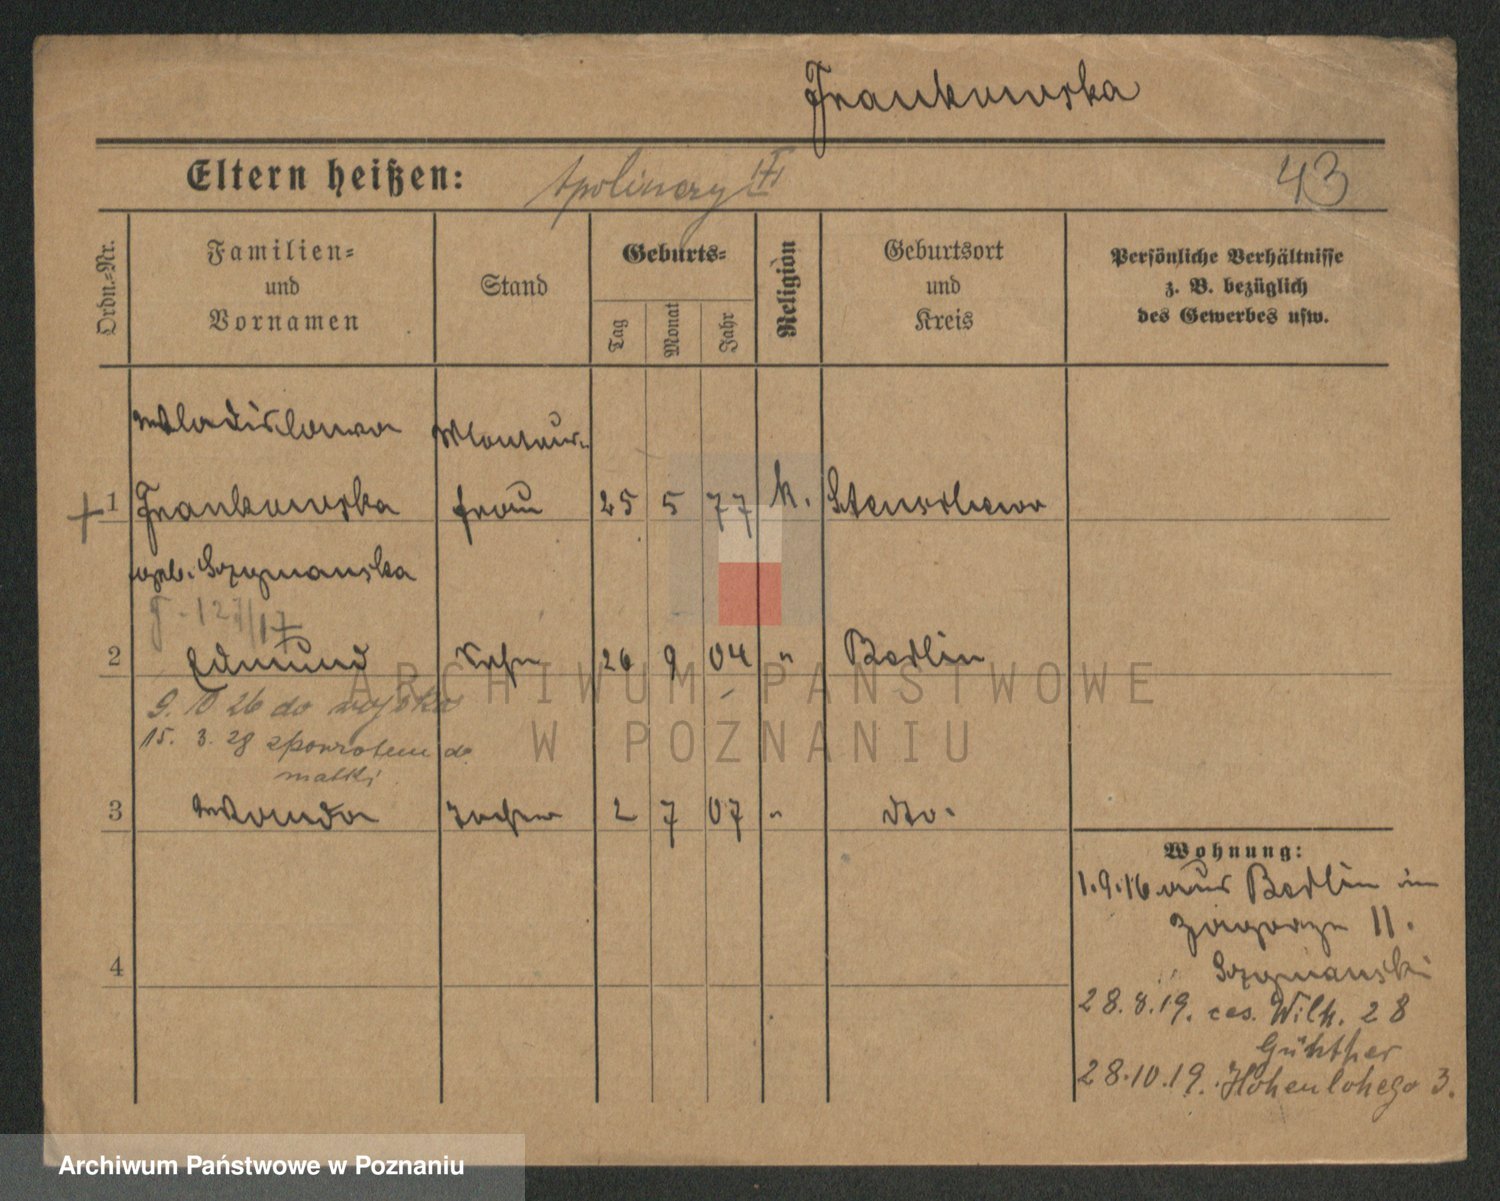 Frankowska
Eltern heißen: Apolinary
43
Ordn.-Nr.
Familien-
und
Vornamen
Stand
Geburts-
Tag
Monat
Jahr
Religion
Geburtsort
und
Kreis
Persönliche Verhältnisse
z. B. bezüglich
des Gewerbes usw.
Wladislawa
1 Frankowska frau 25 5 77 k. Stenschewo
geb. Szymanska
2 Edmund Sohn 26 9 04 " Berlin
9. 10 26 do wojska
15. 3. 28 zpowrotem do
matki
3 Wanda Tochter 2 7 07 " dto.
4
Wohnung:
1.9.16 aus Berlin in
Zagorze 11.
Szymanski
28.8.19. ces. Wilh. 28
Günther
28.10.19. Hohenlohego 3.
ARCHIWUM PAŃSTWOWE
W POZNANIU
Archiwum Państwowe w Poznaniu